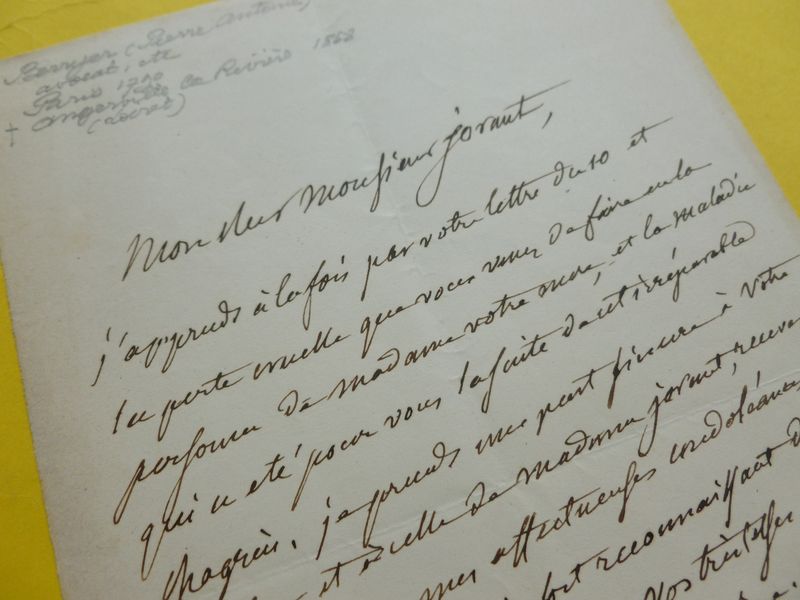 Berryer (Pierre Antoine)
avocat, etc
Paris 1790
+ Angerville la Rivière 1868
(Loiret)
Mon cher Monsieur jovant,
j'apprends à la fois par votre lettre du 10 et
la perte cruelle que vous venez de faire en la
personne de madame votre mère, et la maladie
qui a été pour vous la suite de cet irréparable
chagrin. je prends une part sincère à votre
et à celle de madame jovant, recevez
mes affectueuses condoléances
fort reconnaissant d
vos très